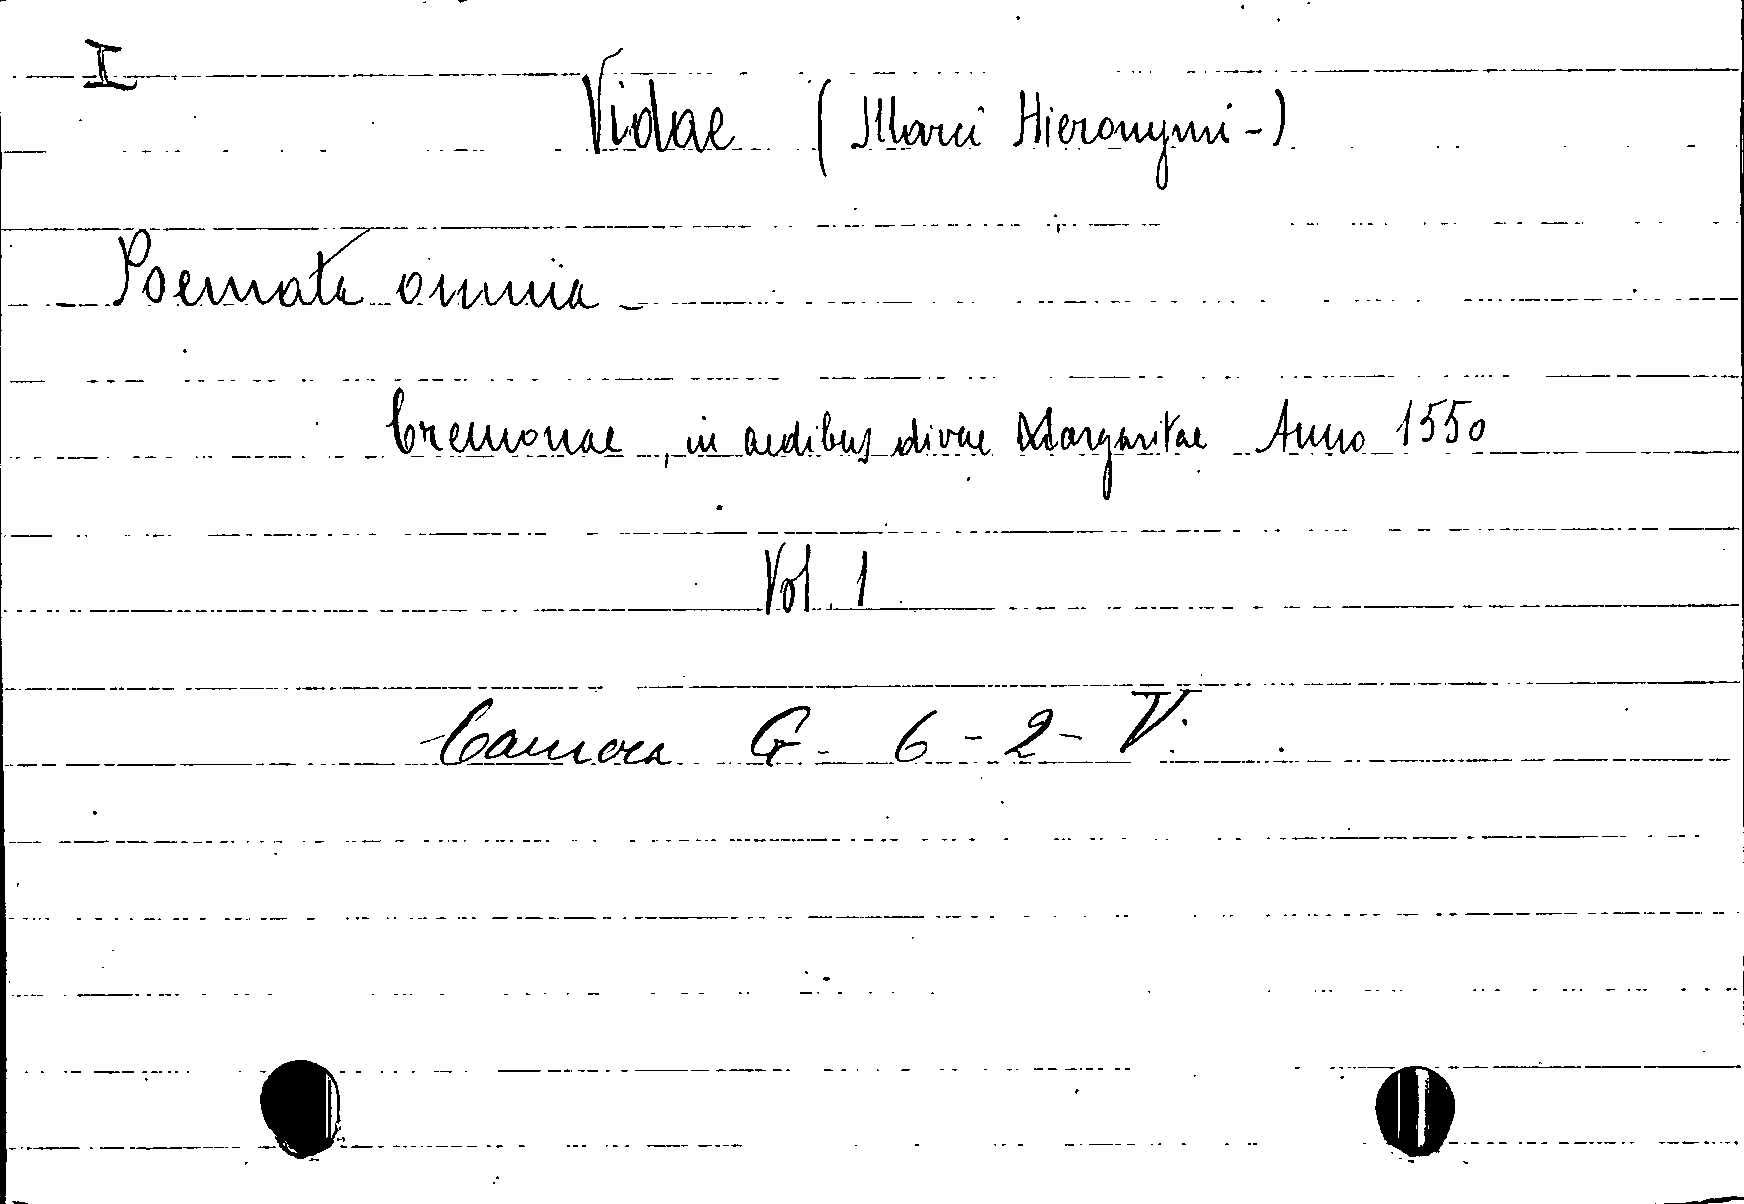 I
Vidae (Marci Hieronymi-)
Poemata omnia -
Cremonae, in aedibus divae Margaritae Anno 1550
Vol. 1
Camera G - 6 - 2 - V.